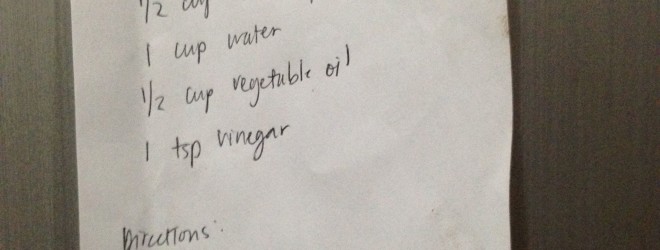 1/2 cup
1 cup water
1/2 cup vegetable oil
1 tsp vinegar
Directions: